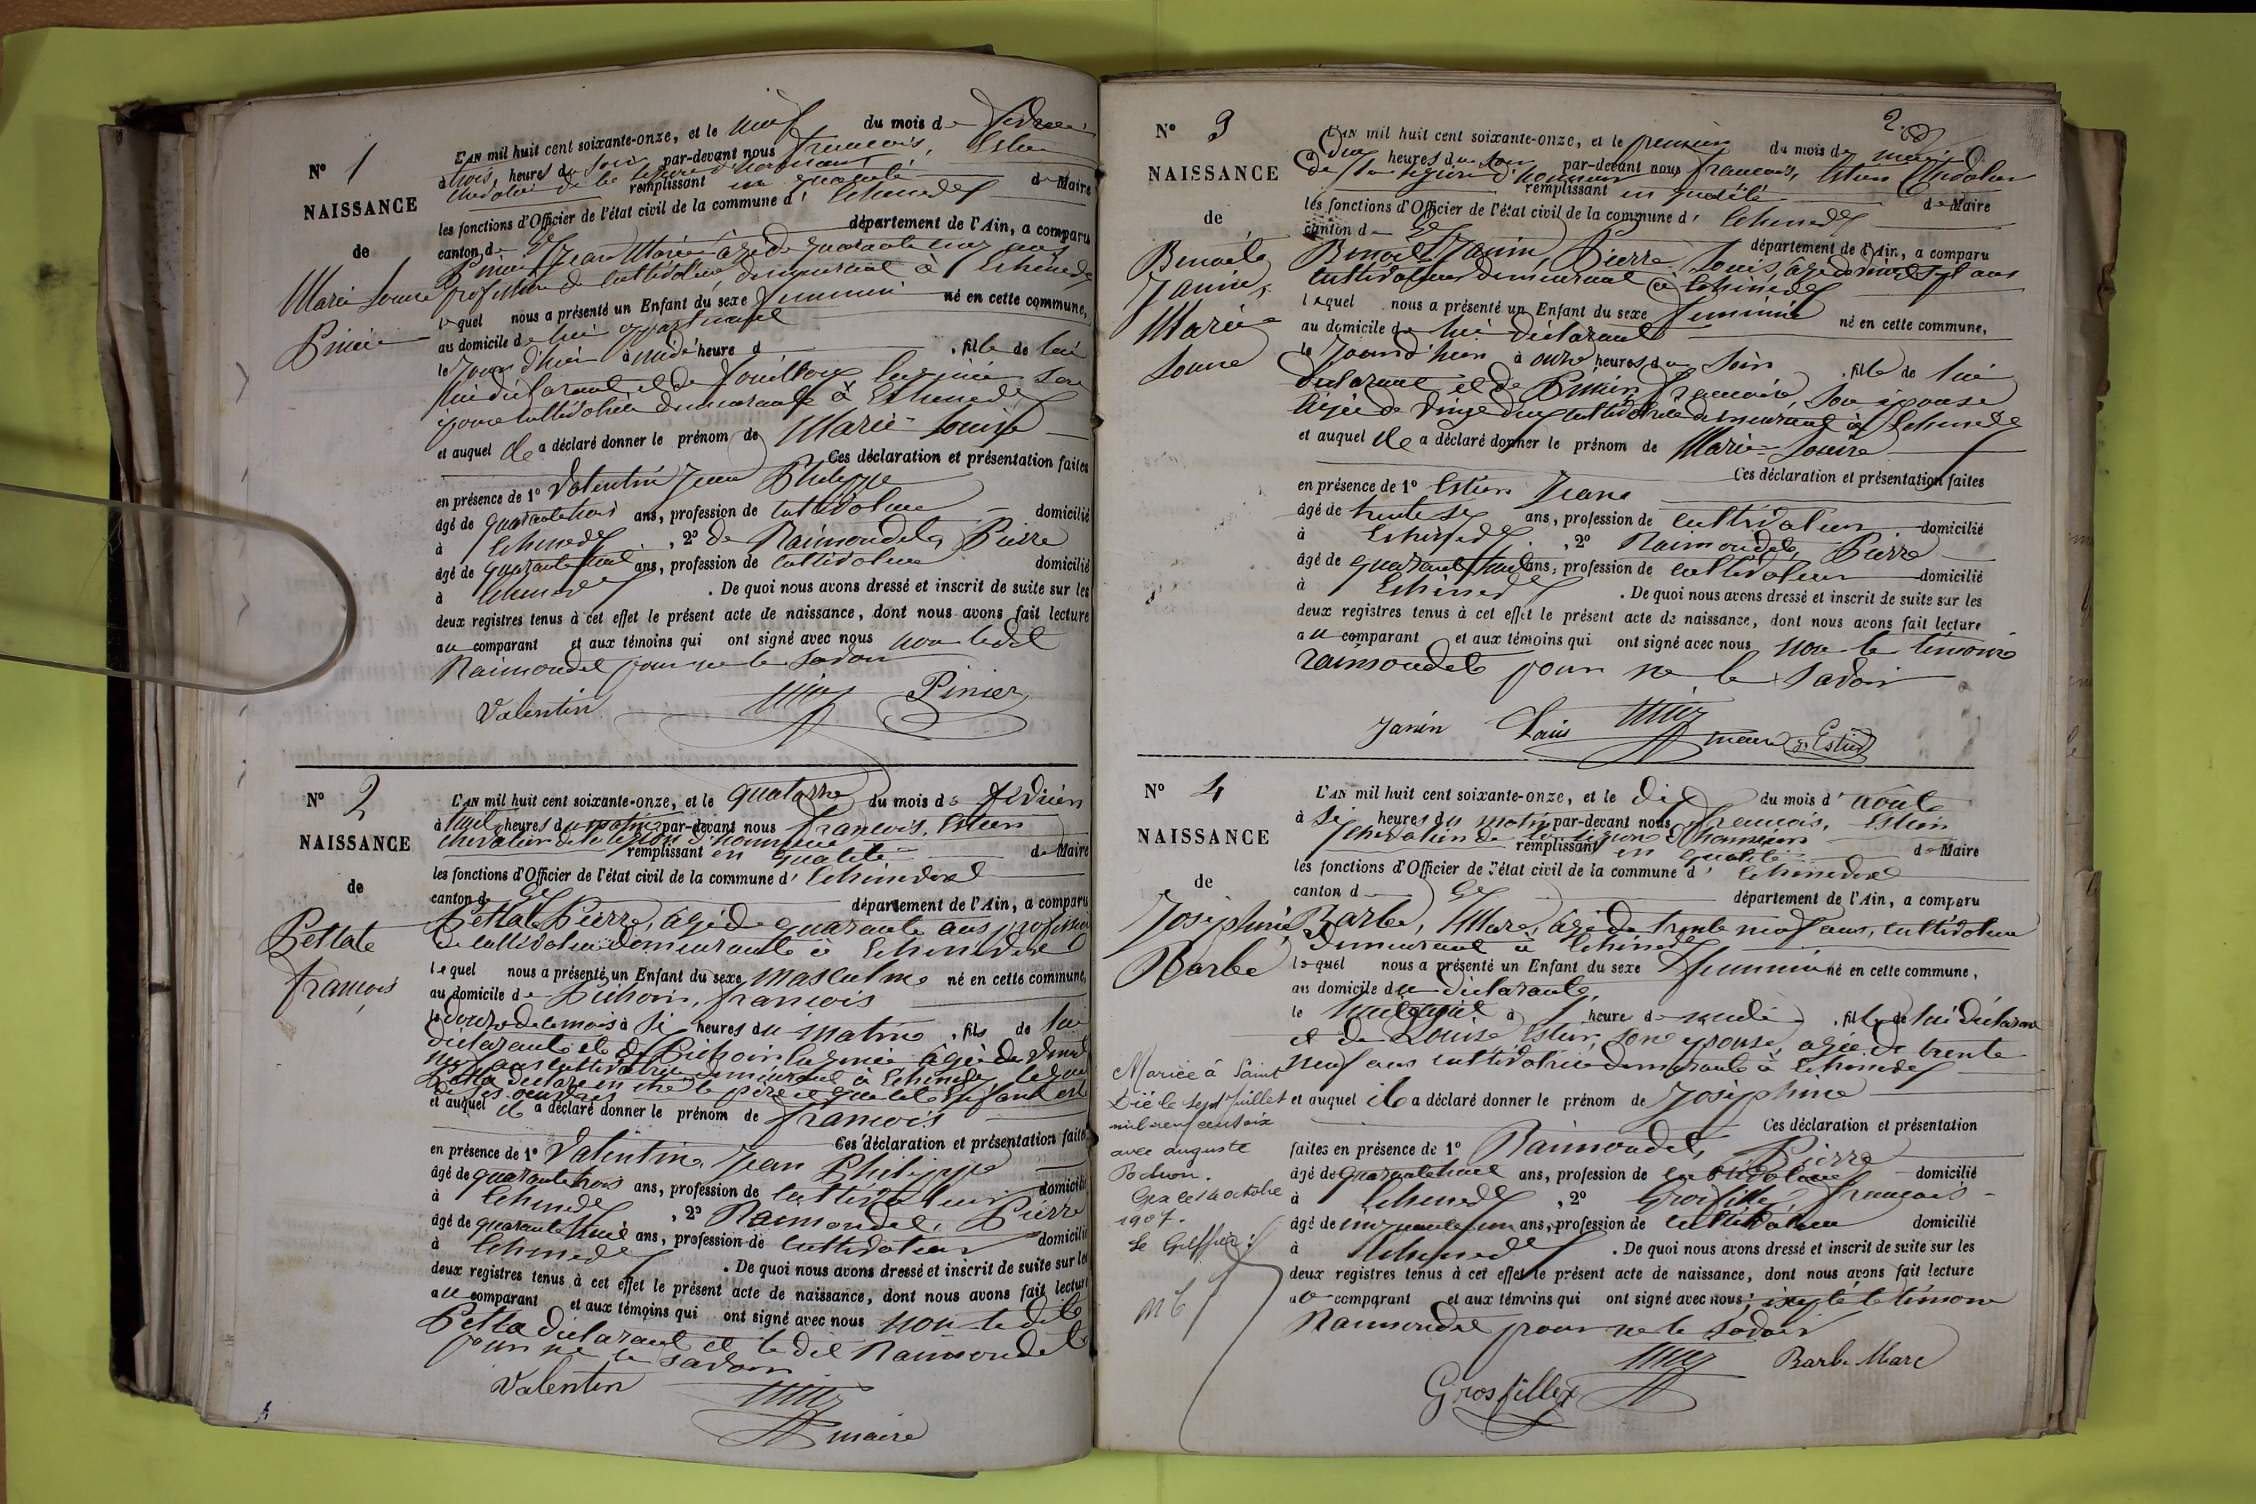 N° 1
NAISSANCE
de
Marie Louise
Pinier
L'AN mil huit cent soixante-onze, et le neuf du mois de
à trois heures du soir par-devant nous francois, Estier
chevalier de la légion d'honneur
remplissant en qualité de Maire
les fonctions d'Officier de l'état civil de la commune d' Echenevex
canton de Gex département de l'Ain, a comparu
Pinier Jean Marie âgé de quarante cinq ans
profession de cultivateur demeurant à Echenevex
lequel nous a présenté un Enfant du sexe feminin né en cette commune,
au domicile de lui
le jour d'hier à midi heure d fille de lui
lui déclarant et de son
épouse cultivatrice demeurant à Echenevex
et auquel il a déclaré donner le prénom de Marie Louise
Ces déclaration et présentation faites
en présence de 1° Valentin Jean Philippe
âgé de quarante trois ans, profession de cultivateur domicilié
à Echenevex, 2° de Raimondet, Pierre
âgé de quarante huit ans, profession de cultivateur domicilié
à Echenevex. De quoi nous avons dressé et inscrit de suite sur les
deux registres tenus à cet effet le présent acte de naissance, dont nous avons fait lecture
au comparant et aux témoins qui ont signé avec nous non ledit
Raimondet pour ne le savoir
Valentin Pinier
N° 2
NAISSANCE
de
Pettate
francois
L'AN mil huit cent soixante-onze, et le quatorze du mois de
à huit heures du matin par-devant nous francois, Estier
chevalier de la légion d'honneur
remplissant en qualité de Maire
les fonctions d'Officier de l'état civil de la commune d' Echenevex
canton de Gex département de l'Ain, a comparu
Pettat Pierre, âgé de quarante ans profession
de cultivateur demeurant à Echenevex
lequel nous a présenté un Enfant du sexe masculin né en cette commune,
au domicile de francois
le douze de ce mois à si heures du matin, fils de lui
déclarant et de âgée de vingt
neuf ans cultivatrice demeurant à Echenevex lequel
et auquel il a déclaré donner le prénom de francois
Ces déclaration et présentation faites
en présence de 1° Valentin Jean Philippe
âgé de quarante trois ans, profession de cultivateur domicilié
à Echenevex, 2° Raimondet, Pierre
âgé de quarante huit ans, profession de cultivateur domicilié
à Echenevex. De quoi nous avons dressé et inscrit de suite sur les
deux registres tenus à cet effet le présent acte de naissance, dont nous avons fait lecture
au comparant et aux témoins qui ont signé avec nous non le dit
Petta déclarant et le dit Raimondet
pour ne le savoir
Valentin
maire
2
N° 3
NAISSANCE
de
Benoit
Janin,
Marie
Louise
L'AN mil huit cent soixante-onze, et le premier du mois de
à dix heures du soir par-devant nous francois, Estier Chevalier
de la légion d'honneur
remplissant en qualité de Maire
les fonctions d'Officier de l'état civil de la commune d' Echenevex
canton de Gex département de l'Ain, a comparu
Benoit Janin, Pierre Louis, âgé de vingt sept ans
cultivateur demeurant à Echenevex
lequel nous a présenté un Enfant du sexe feminin né en cette commune,
au domicile de lui déclarant
le Jourd'hier à onze heures du soir, fille de lui
déclarant et de son épouse
âgée de vingt deux cultivatrice demeurant à Echenevex
et auquel il a déclaré donner le prénom de Marie Louise
Ces déclaration et présentation faites
en présence de 1° Estier
âgé de trente six ans, profession de cultivateur domicilié
à Echenevex, 2° Raimondet, Pierre
âgé de quarante huit ans, profession de cultivateur domicilié
à Echenevex. De quoi nous avons dressé et inscrit de suite sur les
deux registres tenus à cet effet le présent acte de naissance, dont nous avons fait lecture
au comparant et aux témoins qui ont signé avec nous non le témoin
raimondet pour ne le savoir
Janin Louis maire Estier
N° 4
NAISSANCE
de
Joséphine
Barbe
L'AN mil huit cent soixante-onze, et le dix du mois d' août
à si heures du matin par-devant nous francois, Estier
chevalier de la légion d'honneur
remplissant en qualité de Maire
les fonctions d'Officier de l'état civil de la commune d' Echenevex
canton d Gex département de l'Ain, a comparu
Barbe, Marc, âgé de trente neuf ans, cultivateur
demeurant à Echenevex
lequel nous a présenté un Enfant du sexe feminin né en cette commune,
au domicile du déclarant,
le à heure de midi, fille de lui déclarant
et de Louise Estier, son épouse, agée de trente
neuf ans cultivatrice demeurant à Echenevex
et auquel il a déclaré donner le prénom de Joséphine
Ces déclaration et présentation
faites en présence de 1° Raimondet, Pierre
âgé de quarante huit ans, profession de cultivateur domicilié
à Echenevex, 2° Grosfillex, francois
âgé de cinquante un ans, profession de cultivateur domicilié
à Echenevex. De quoi nous avons dressé et inscrit de suite sur les
deux registres tenus à cet effet le présent acte de naissance, dont nous avons fait lecture
au comparant et aux témoins qui ont signé avec nous; excepté le témoin
Raimondet pour ne le savoir
Barbe Marc
Grosfillex
Mariée à Saint
Dié le sept Juillet
mil neuf cent six
avec auguste
Pochon.
Gex le 14 octobre
1907.
Le Greffier: